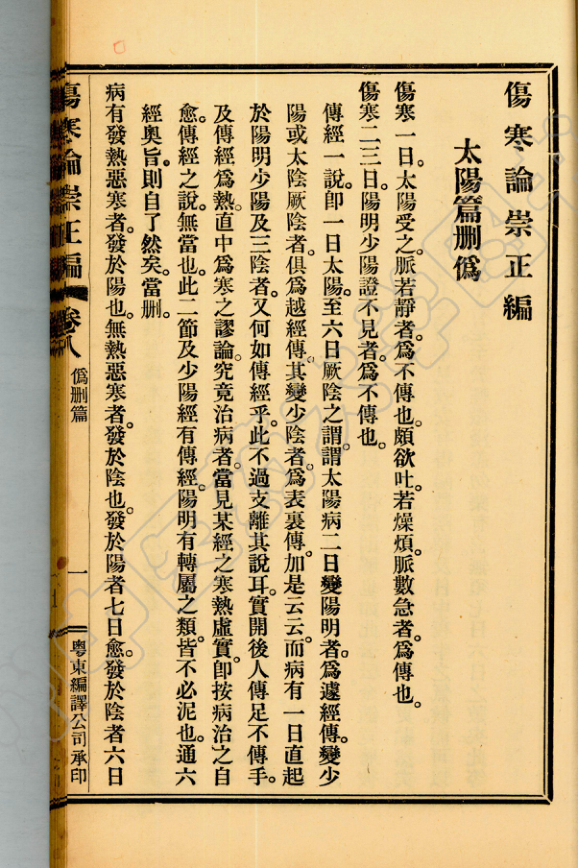 傷寒論崇正編
太陽篇刪僞
傷寒一日。太陽受之。脈若靜者。爲不傳也。頗欲吐。若燥煩。脈數急者。爲傳也。
傷寒二三日。陽明少陽證不見者。爲不傳也。
傳經一說。卽一日太陽。至六日厥陰之謂。謂太陽病二日變陽明者。爲遽經傳。變少
陽或太陰厥陰者。俱爲越經傳。其變少陰者。爲表裏傳。加是云云。而病有一日直起
於陽明少陽及三陰者。又何如傳經乎。此不過支離其說耳。實開後人傳足不傳手。
及傳經爲熱。直中爲寒之謬論。究竟治病者。當見某經之寒熱虛實。卽按病治之自
愈。傳經之說。無當也。此二節及少陽經有傳經。陽明有轉屬之類。皆不必泥也。通六
經奧旨。則自了然矣。當刪。
病有發熱惡寒者。發於陽也。無熱惡寒者。發於陰也。發於陽者七日愈。發於陰者六日
傷寒論崇正編 卷八 僞刪篇 一 粵東編譯公司承印